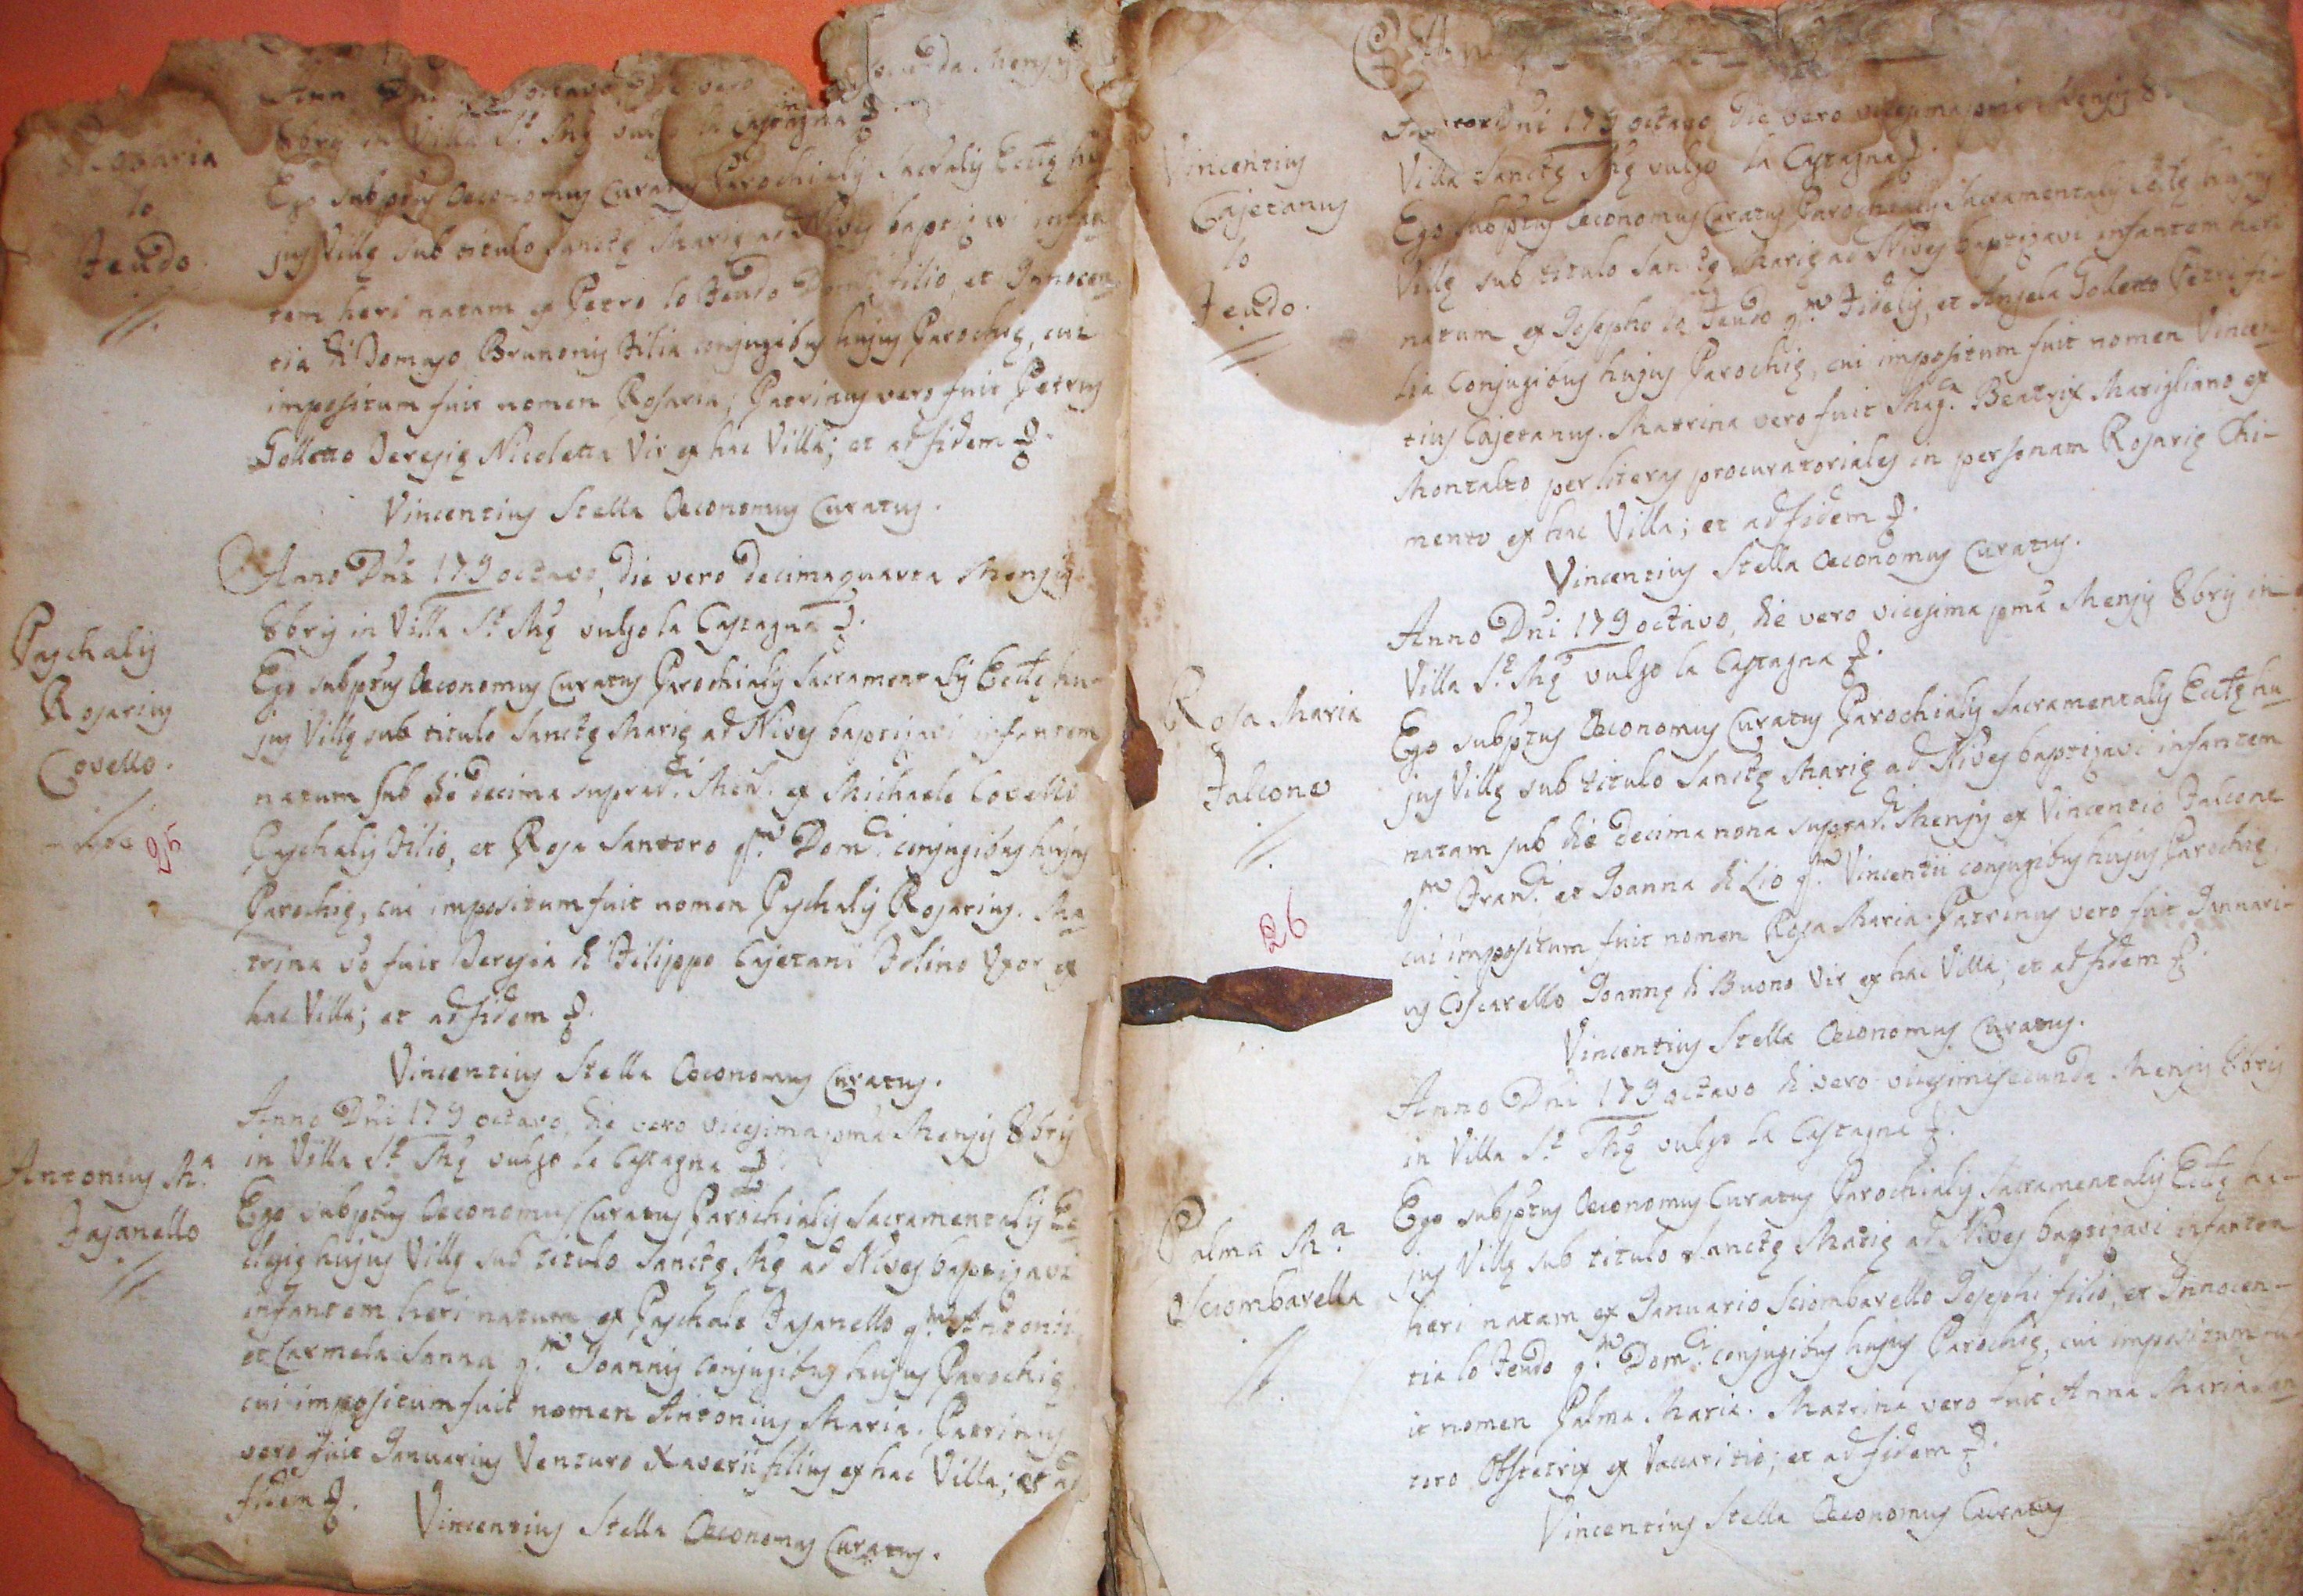 Rosaria
lo
Feudo.
octavo, vero secunda Mensis
8bris in Villa S.ę Mę vulgo la Castagna
Ego subptus Oeconomus Curatus Parochialis Sacralis Eccłę hu-
jus Villę sub titulo Sanctę Marię ad Nives baptizavi infan
tem heri natam ex Petro lo Feudo filio, et Innocen
tia di Tomaso Brunonis Filia conjugibus hujus Parochię, cui
impositum fuit nomen Rosaria; Patrinus vero fuit Petrus
Golletto Teresię Nicoletta Vir ex hac Villa; et ad fidem
Vincentius Stella Oeconomus Curatus.
Paschalis
Rosarius
Covello.
25
Anno Dni 179 octavo, die vero decimaquarta Mensis
8bris in Villa S.ę Mę vulgo la Castagna
Ego subptus Oeconomus Curatus Parochialis Sacramentalis Eccłę hu-
jus Villę sub titulo Sanctę Marię ad Nives baptizavi infantem
natum sub die decima suprad.i Men. ex Michaele Covello
Paschalis Filio, et Rosa Santoro q.m Dom.ci conjugibus hujus
Parochię, cui impositum fuit nomen Paschalis Rosarius. Ma
trina vo fuit Teresia di Filippo Cajetani Folino Uxor ex
hac Villa; et ad fidem
Vincentius Stella Oeconomus Curatus.
Antonius M.a
Fasanello
Anno Dni 179 octavo, die vero vicesimapma Mensis 8bris
in Villa S.ę Mę vulgo la Castagna
Ego subptus Oeconomus Curatus Parochialis Sacramentalis Ec
clesię hujus Villę sub titulo Sanctę Mę ad Nives baptizavi
infantem heri natum ex Paschale Fasanello q.m Antonii,
et Carmela Sanna q.m Joannis conjugibus hujus Parochię
cui impositum fuit nomen Antonius Maria. Patrinus
vero fuit Januarius Venturo Xaverii filius ex hac Villa; et ad
fidem
Vincentius Stella Oeconomus Curatus.
Vincentius
Cajetanus
lo
Feudo.
Dni 179 octavo die vero vicesimapma Mensis
Villa Sanctę Mę vulgo la Castagna
Ego subptus Oeconomus Curatus Parochialis Sacramentalis Eccłę hujus
Villę sub titulo Sanctę Marię ad Nives baptizavi infantem heri
natum ex Josepho lo Feudo q.m Fidelis, et Angela Golletto Petri fi-
lia Conjugibus hujus Parochię, cui impositum fuit nomen Vincen
tius Cajetanus. Matrina vero fuit Mag.ca Beatrix Marigliano ex
Montalto per literas procuratoriales in personam Rosarię Chi-
mento ex hac Villa; et ad fidem
Vincentius Stella Oeconomus Curatus.
Rosa Maria
Falcone
26
Anno Dni 179 octavo, die vero vicesima pma Mensis 8bris in
Villa S.ę Mę vulgo la Castagna
Ego subptus Oeconomus Curatus Parochialis Sacramentalis Eccłę hu
jus Villę sub titulo Sanctę Marię ad Nives baptizavi infantem
natam sub die decima nona suprad.i Mensis ex Vincentio Falcone
q.m Fran.ci et Joanna di Lio q.m Vincentii conjugibus hujus Parochię,
cui impositum fuit nomen Rosa Maria. Patrinus vero fuit Januari-
us Coscarello Joannę di Buono Vir ex hac Villa; et ad fidem
Vincentius Stella Oeconomus Curatus.
Palma M.a
Sciombarella
Anno Dni 179 octavo di vero vicesimesecunda Mensis 8bris
in Villa S.ę Mę vulgo la Castagna
Ego subptus Oeconomus Curatus Parochialis Sacramentalis Eccłę hu-
jus Villę sub titulo Sanctę Marię ad Nives baptizavi infantem
heri natam ex Januario Sciombarello Josephi filio, et Innocen-
tia lo Feudo q.m Dom.ci conjugibus hujus Parochię, cui impositum fu-
it nomen Palma Maria. Matrina vero fuit Anna Maria San
toro Obstetrix ex Vaccaritio; et ad fidem
Vincentius Stella Oeconomus Curatus